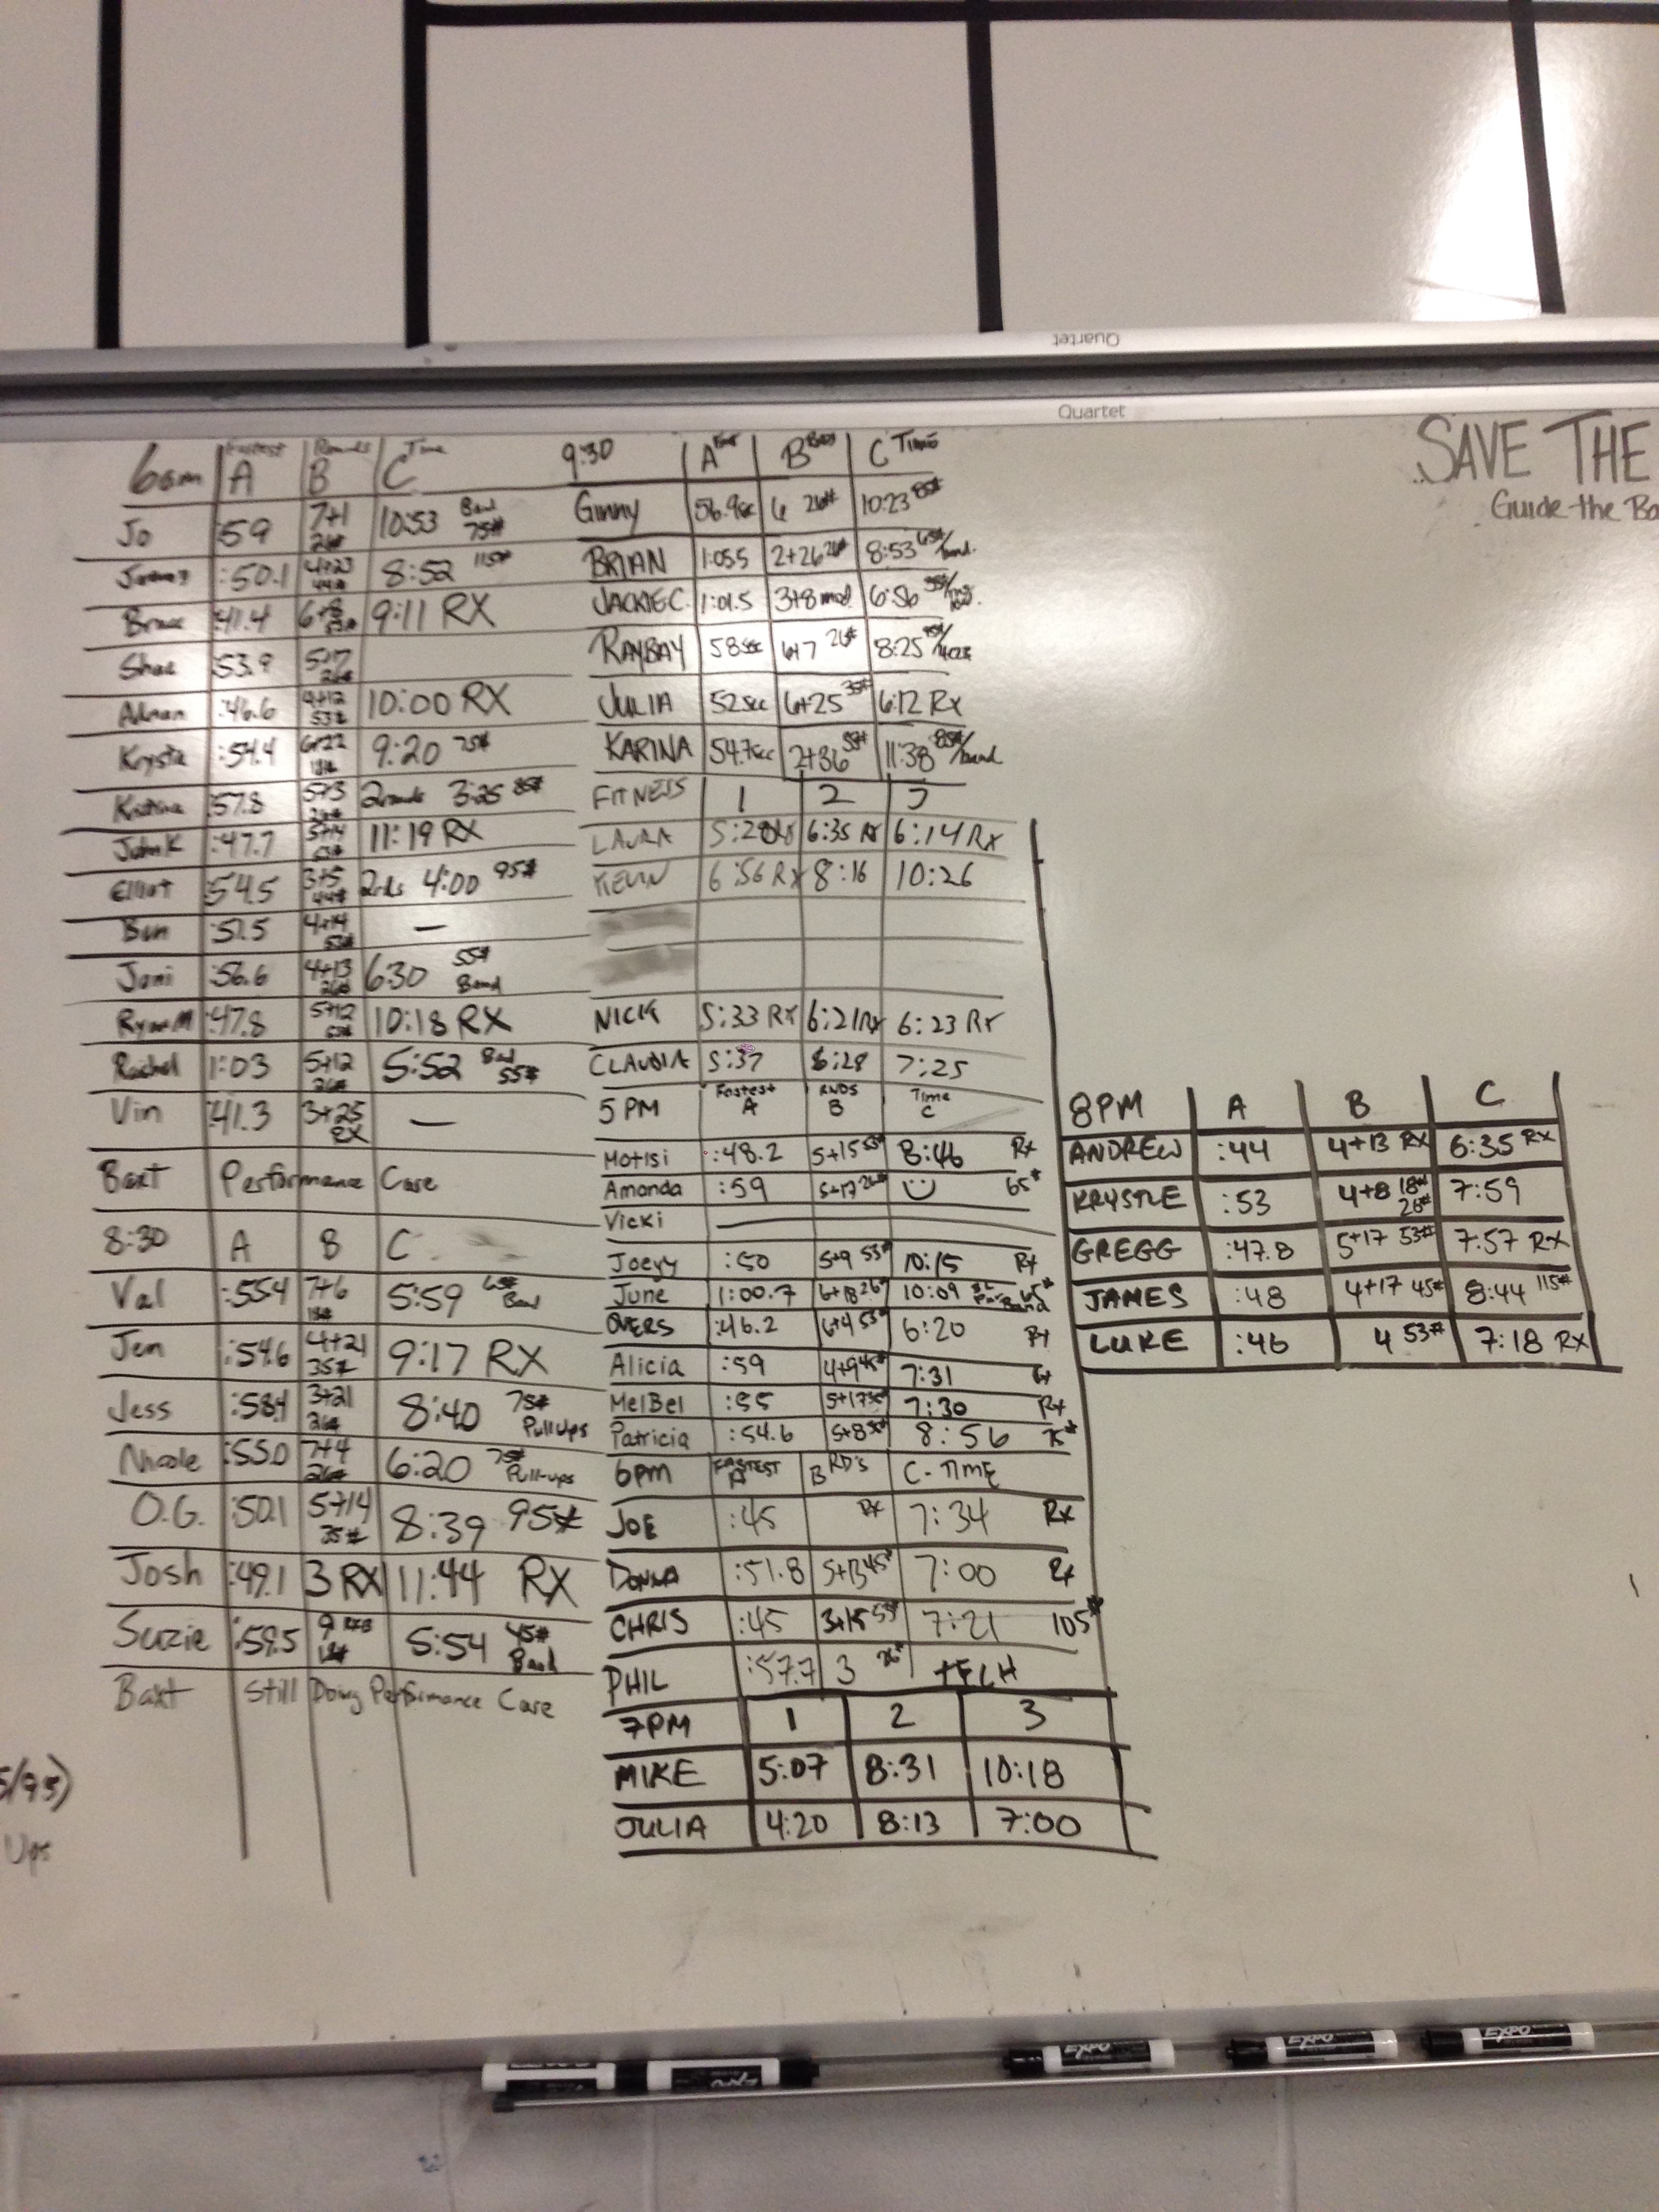 Quartet
Quartet
SAVE THE
Guide the Bo
6am Fastest A Rounds B Time C
Jo :59 7+1 26# 10:53 Band 75#
:50.1 4+23 44# 8:52 115#
Bruce :41.4 6+8 53# 9:11 RX
Shae :53.9 5+17 26#
Adnan :46.6 4+12 53# 10:00 RX
Krysta :54.4 6+22 18# 9:20 75#
Kristina :57.8 5+3 26# 2rounds 3:25 85#
John K :47.7 5+14 53# 11:19 RX
Elliot :54.5 3+5 44# 2rds 4:00 95#
Ben :51.5 4+14 53# —
Joni :56.6 4+13 26# 6:30 55# Band
Ryan M :47.8 5+12 53# 10:18 RX
Rachel 1:03 5+12 26# 5:52 Band 55#
Vin :41.3 3+25 RX —
Baxt Performance Care
8:30 A B C
Val :55.4 7+6 18# 5:59 65# Band
Jen :54.6 4+21 35# 9:17 RX
Jess :58.4 3+21 26# 8:40 75# Pull ups
Nicole :55.0 7+4 26# 6:20 75# Pull-ups
O.G. :50.1 5+14 35# 8:39 95#
Josh :49.1 3 RX 11:44 RX
Suzie :59.5 9 18# 5:54 45# Band
Baxt Still Doing Performance Care
5/95)
Ups
9:30 A B C Time
Ginny 56.9sec 6 26# 10:23 85#
BRIAN 1:05.5 2+26 26# 8:53 65#/band.
JACKIE C. 1:01.5 3+8 mod. 6:56
RAYBAY 58sec 6+7 26# 8:25
JULIA 52sec 6+25 35# 6:12 RX
KARINA 54.7sec 2+36 11:38 85#/band
FITNESS 1 2 3
LAURA 5:28 RX 6:35 RX 6:14 RX
KEVIN 6:56 RX 8:16 10:26
NICK 5:33 RX 6:21 RX 6:23 RX
CLAUDIA 5:37 6:28 7:25
5PM Fastest A RNDS B Time C
Motisi :48.2 5+15 53# 8:46 Rx
Amanda :59 5+17 26# 65#
Vicki
Joeyy :50 5+9 53# 10:15 Rx
June 1:00.7 6+18 26# 10:09 65# Band
OVERS :46.2 6+4 53# 6:20 Rx
Alicia :59 4+9 45# 7:31 Rx
MelBel :55 5+17 35# 7:30 Rx
Patricia :54.6 5+8 7:56 75#
6pm FASTEST A B RD'S C-TIME
JOE :45 Rx 7:34 Rx
DONNA :51.8 5+13 45# 7:00 Rx
CHRIS :45 3+15 53# 7:21 105#
PHIL :57.7 3 26# TECH
7PM 1 2 3
MIKE 5:07 8:31 10:18
JULIA 4:20 8:13 7:00
8PM A B C
ANDREW :44 4+13 RX 6:35 RX
KRYSTLE :53 4+8 18# 26# 7:59
GREGG :47.8 5+17 53# 7:57 RX
JAMES :48 4+17 45# 8:44 115#
LUKE :46 4 53# 7:18 RX
EXPO
EXPO
EXPO